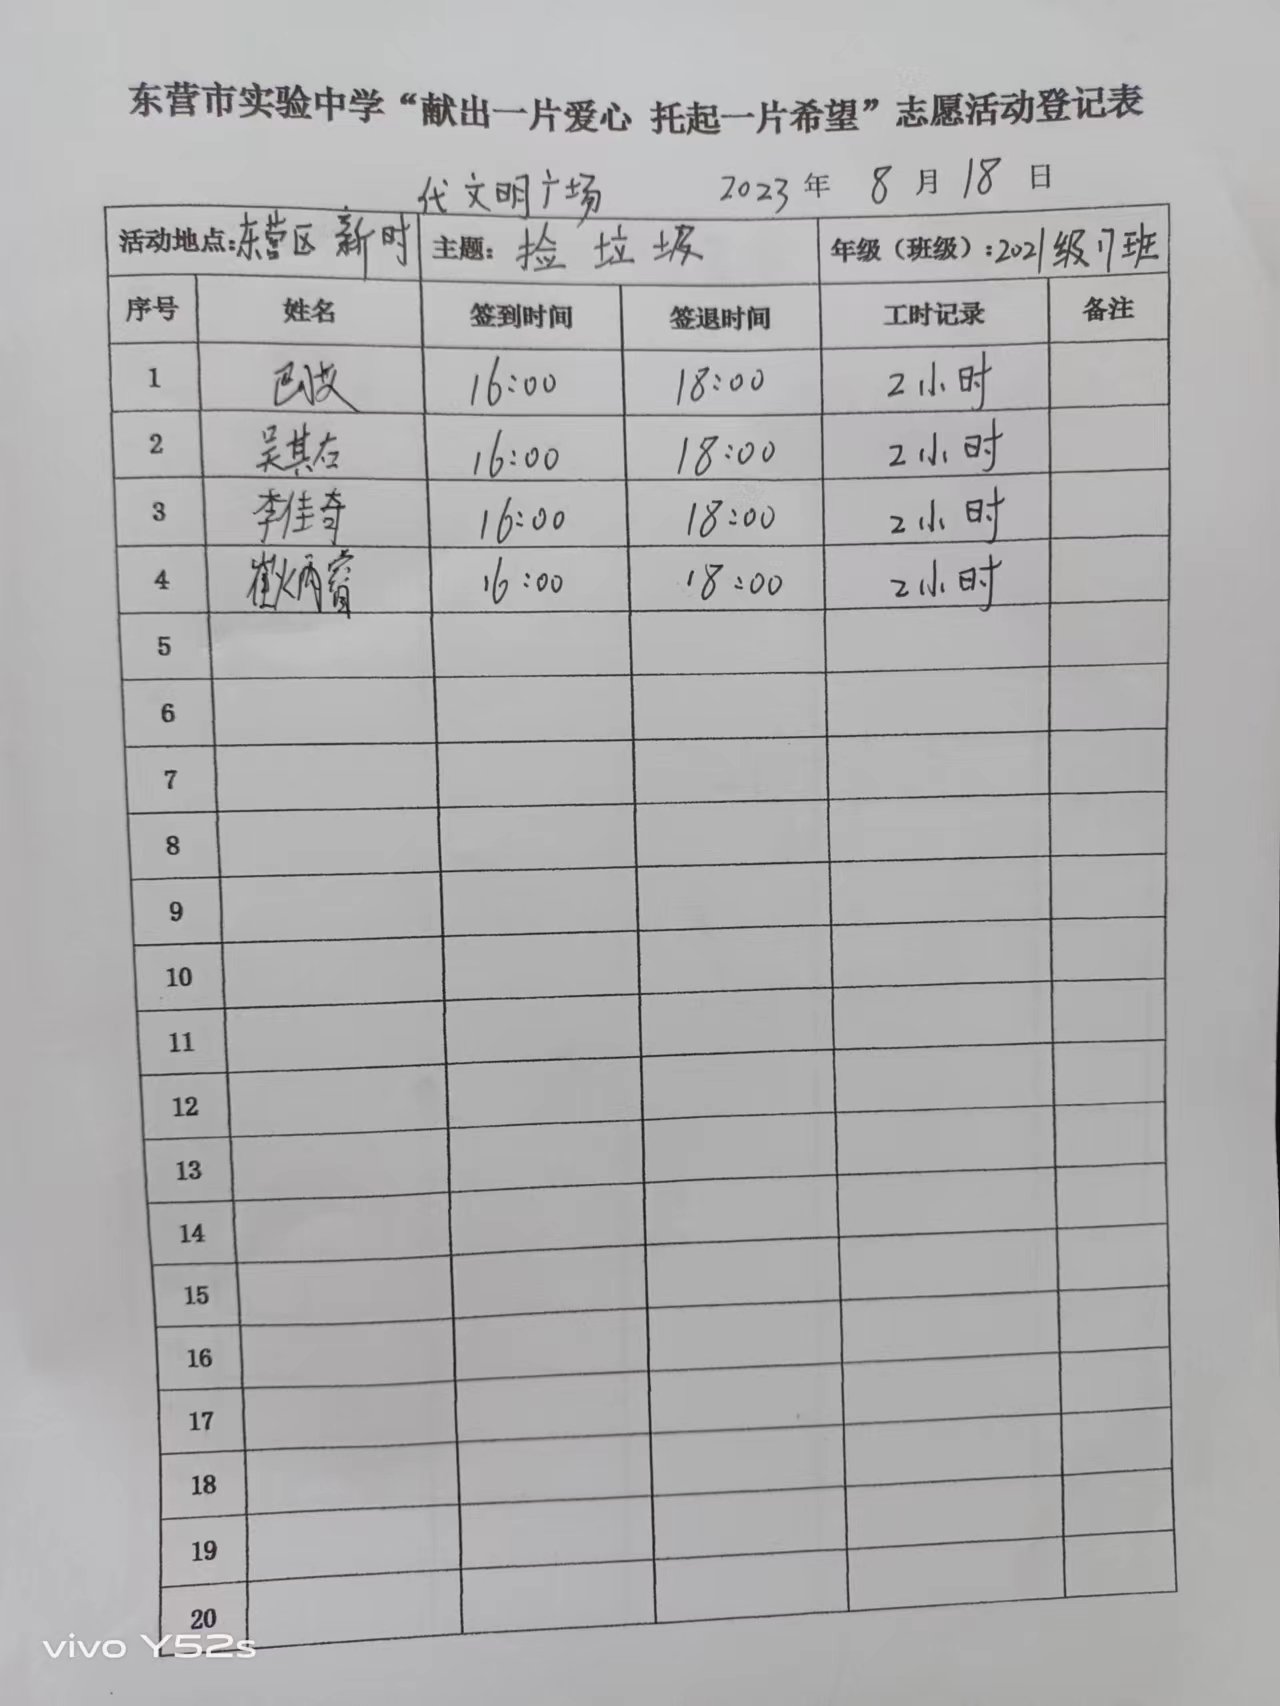 东营市实验中学“献出一片爱心 托起一片希望”志愿活动登记表
代文明广场 2023年 8月18日
活动地点:东营区 新时 主题: 捡 垃 圾 年级(班级):2021级17班
序号 姓名 签到时间 签退时间 工时记录 备注
1 16:00 18:00 2小时
2 吴其右 16:00 18:00 2小时
3 李佳奇 16:00 18:00 2小时
4 16:00 18:00 2小时
5
6
7
8
9
10
11
12
13
14
15
16
17
18
19
20
vivo Y52s